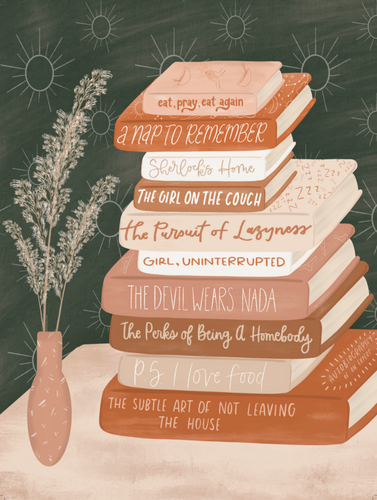 eat, pray, eat again
A NAP TO REMEMBER
Sherlock's Home
THE GIRL ON THE COUCH
the Pursuit of Lazyness
GIRL, UNINTERRUPTED
THE DEVIL WEARS NADA
The Perks of Being A Homebody
PS I love food
AUTOBIOGRAPHY
OF AN
THE SUBTLE ART OF NOT LEAVING
THE HOUSE